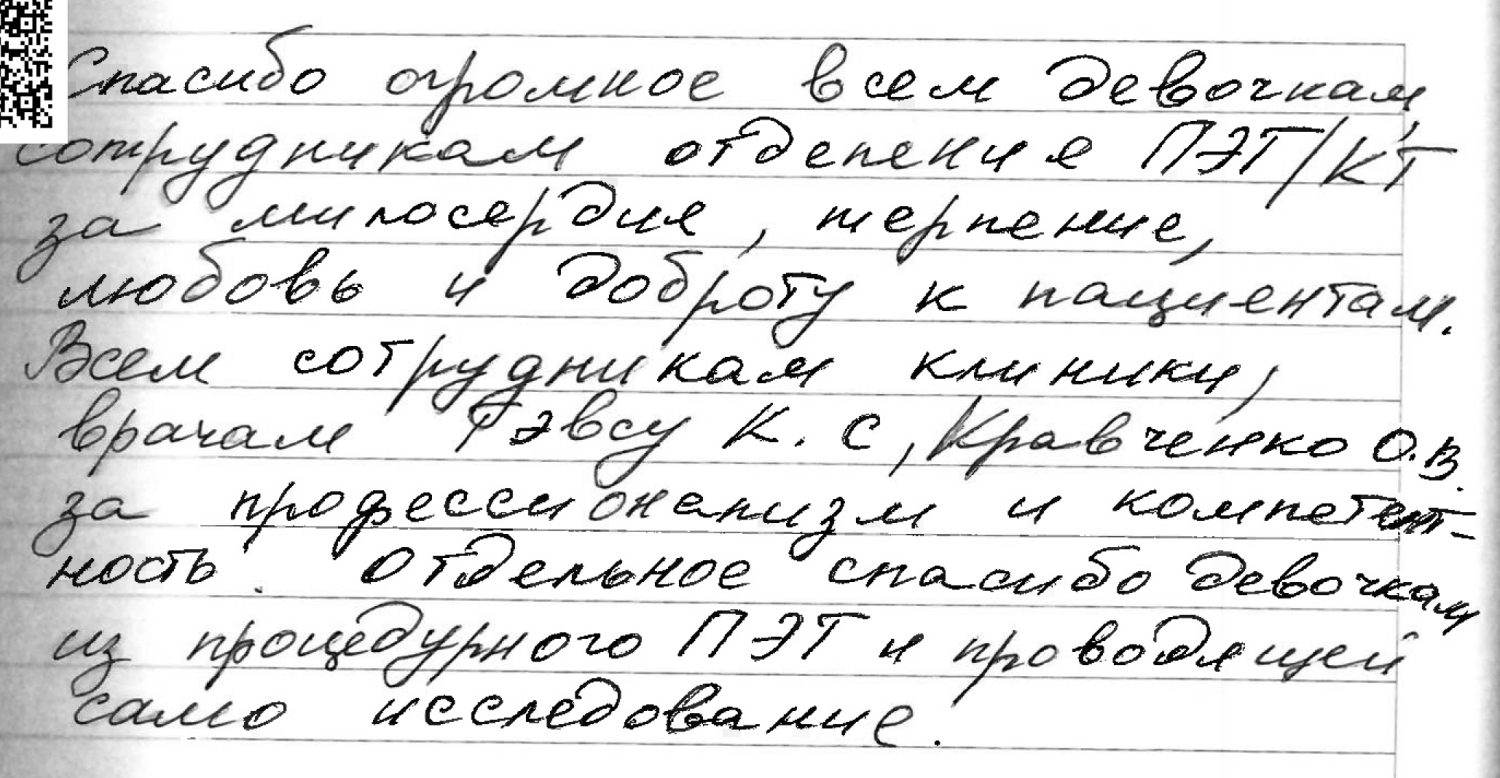 Спасибо огромное всем девочкам,
сотрудникам отделения ПЭТ/КТ
за милосердие, терпение,
любовь и доброту к пациентам.
Всем сотрудникам клиники,
врачам Гэвсу К. С, Кравченко О.В.
за профессионализм и компетент-
ность. Отдельное спасибо девочкам
из процедурного ПЭТ и проводящей
само исследование.